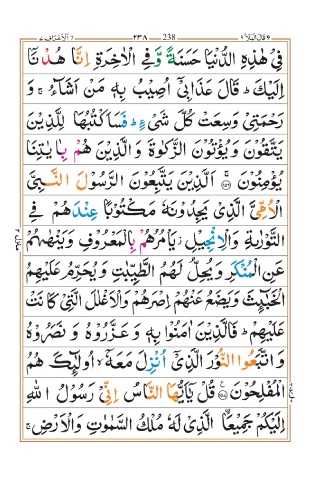 قال الملا ٩ 238 ٢٣٨ الاعراف ٧
فِیْ هٰذِهِ الدُّنْیَا حَسَنَةً وَّ فِی الْاٰخِرَةِ اِنَّا هُدْنَاۤ
اِلَیْكَ ؕ قَالَ عَذَابِیْۤ اُصِیْبُ بِهٖ مَنْ اَشَآءُ ۚ وَ
رَحْمَتِیْ وَسِعَتْ كُلَّ شَیْءٍ ؕ فَسَاَكْتُبُهَا لِلَّذِیْنَ
یَتَّقُوْنَ وَ یُؤْتُوْنَ الزَّكٰوةَ وَ الَّذِیْنَ هُمْ بِاٰیٰتِنَا
یُؤْمِنُوْنَ ۚ﴿۱۵۶﴾ اَلَّذِیْنَ یَتَّبِعُوْنَ الرَّسُوْلَ النَّبِیَّ
الْاُمِّیَّ الَّذِیْ یَجِدُوْنَهٗ مَكْتُوْبًا عِنْدَهُمْ فِی
التَّوْرٰىةِ وَ الْاِنْجِیْلِ ؗ یَاْمُرُهُمْ بِالْمَعْرُوْفِ وَ یَنْهٰىهُمْ
عَنِ الْمُنْكَرِ وَ یُحِلُّ لَهُمُ الطَّیِّبٰتِ وَ یُحَرِّمُ عَلَیْهِمُ
الْخَبٰٓىِٕثَ وَ یَضَعُ عَنْهُمْ اِصْرَهُمْ وَ الْاَغْلٰلَ الَّتِیْ كَانَتْ
عَلَیْهِمْ ؕ فَالَّذِیْنَ اٰمَنُوْا بِهٖ وَ عَزَّرُوْهُ وَ نَصَرُوْهُ
وَ اتَّبَعُوا النُّوْرَ الَّذِیْۤ اُنْزِلَ مَعَهٗۤ ۙ اُولٰٓىِٕكَ هُمُ
الْمُفْلِحُوْنَ ﴿۱۵۷﴾ قُلْ یٰۤاَیُّهَا النَّاسُ اِنِّیْ رَسُوْلُ اللّٰهِ
اِلَیْكُمْ جَمِیْعَا ۨ الَّذِیْ لَهٗ مُلْكُ السَّمٰوٰتِ وَ الْاَرْضِ ۚ